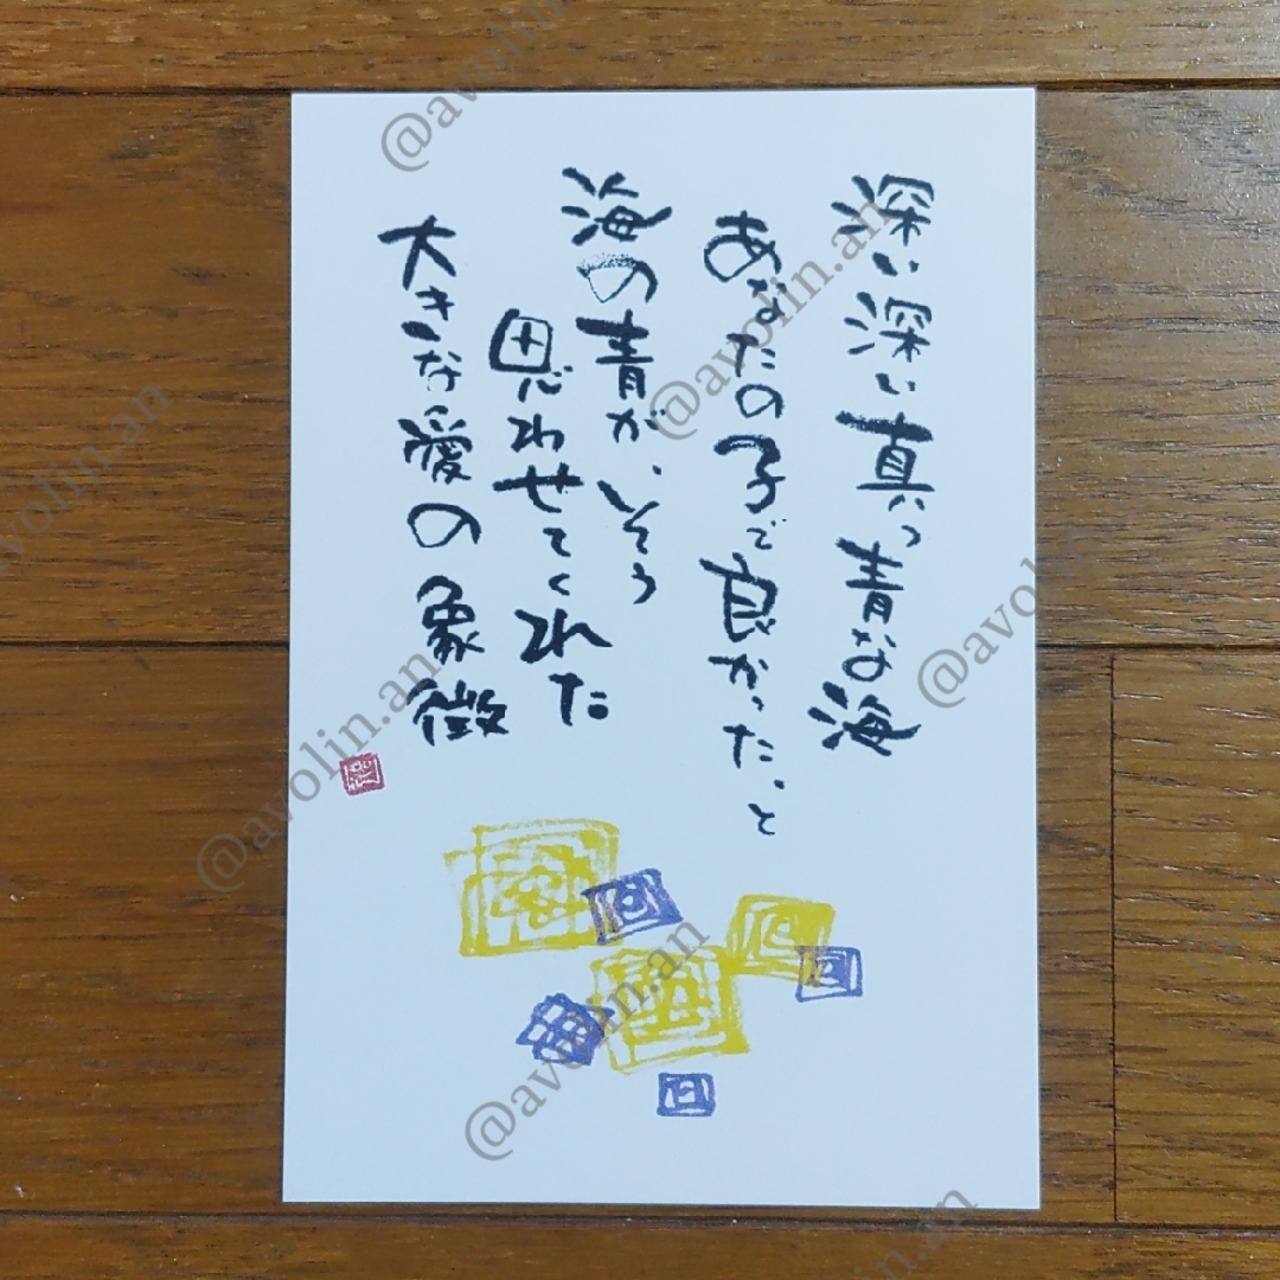 深い深い真っ青な海
あなたの子で良かった、と
海の青が、そう
思わせてくれた
大きな愛の象徴
@avolin.an
@avolin.an
@avolin.an
@avolin.an
@avolin.an
@avolin.an